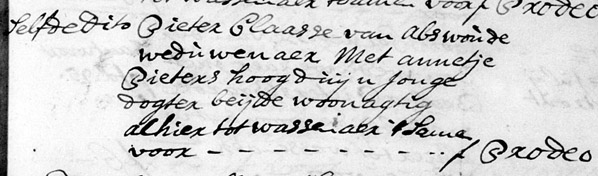 tot wassenaer tsamen voor f Prodeo
Selfde dito Pieter Claasse van Abswoude
weduwenaer Met annetje
Pieters hoogduijn Jonge
dogter beijde woonagtig
alhier tot wassenaer tsame
voor - - - - - - - - - - f Prodeo